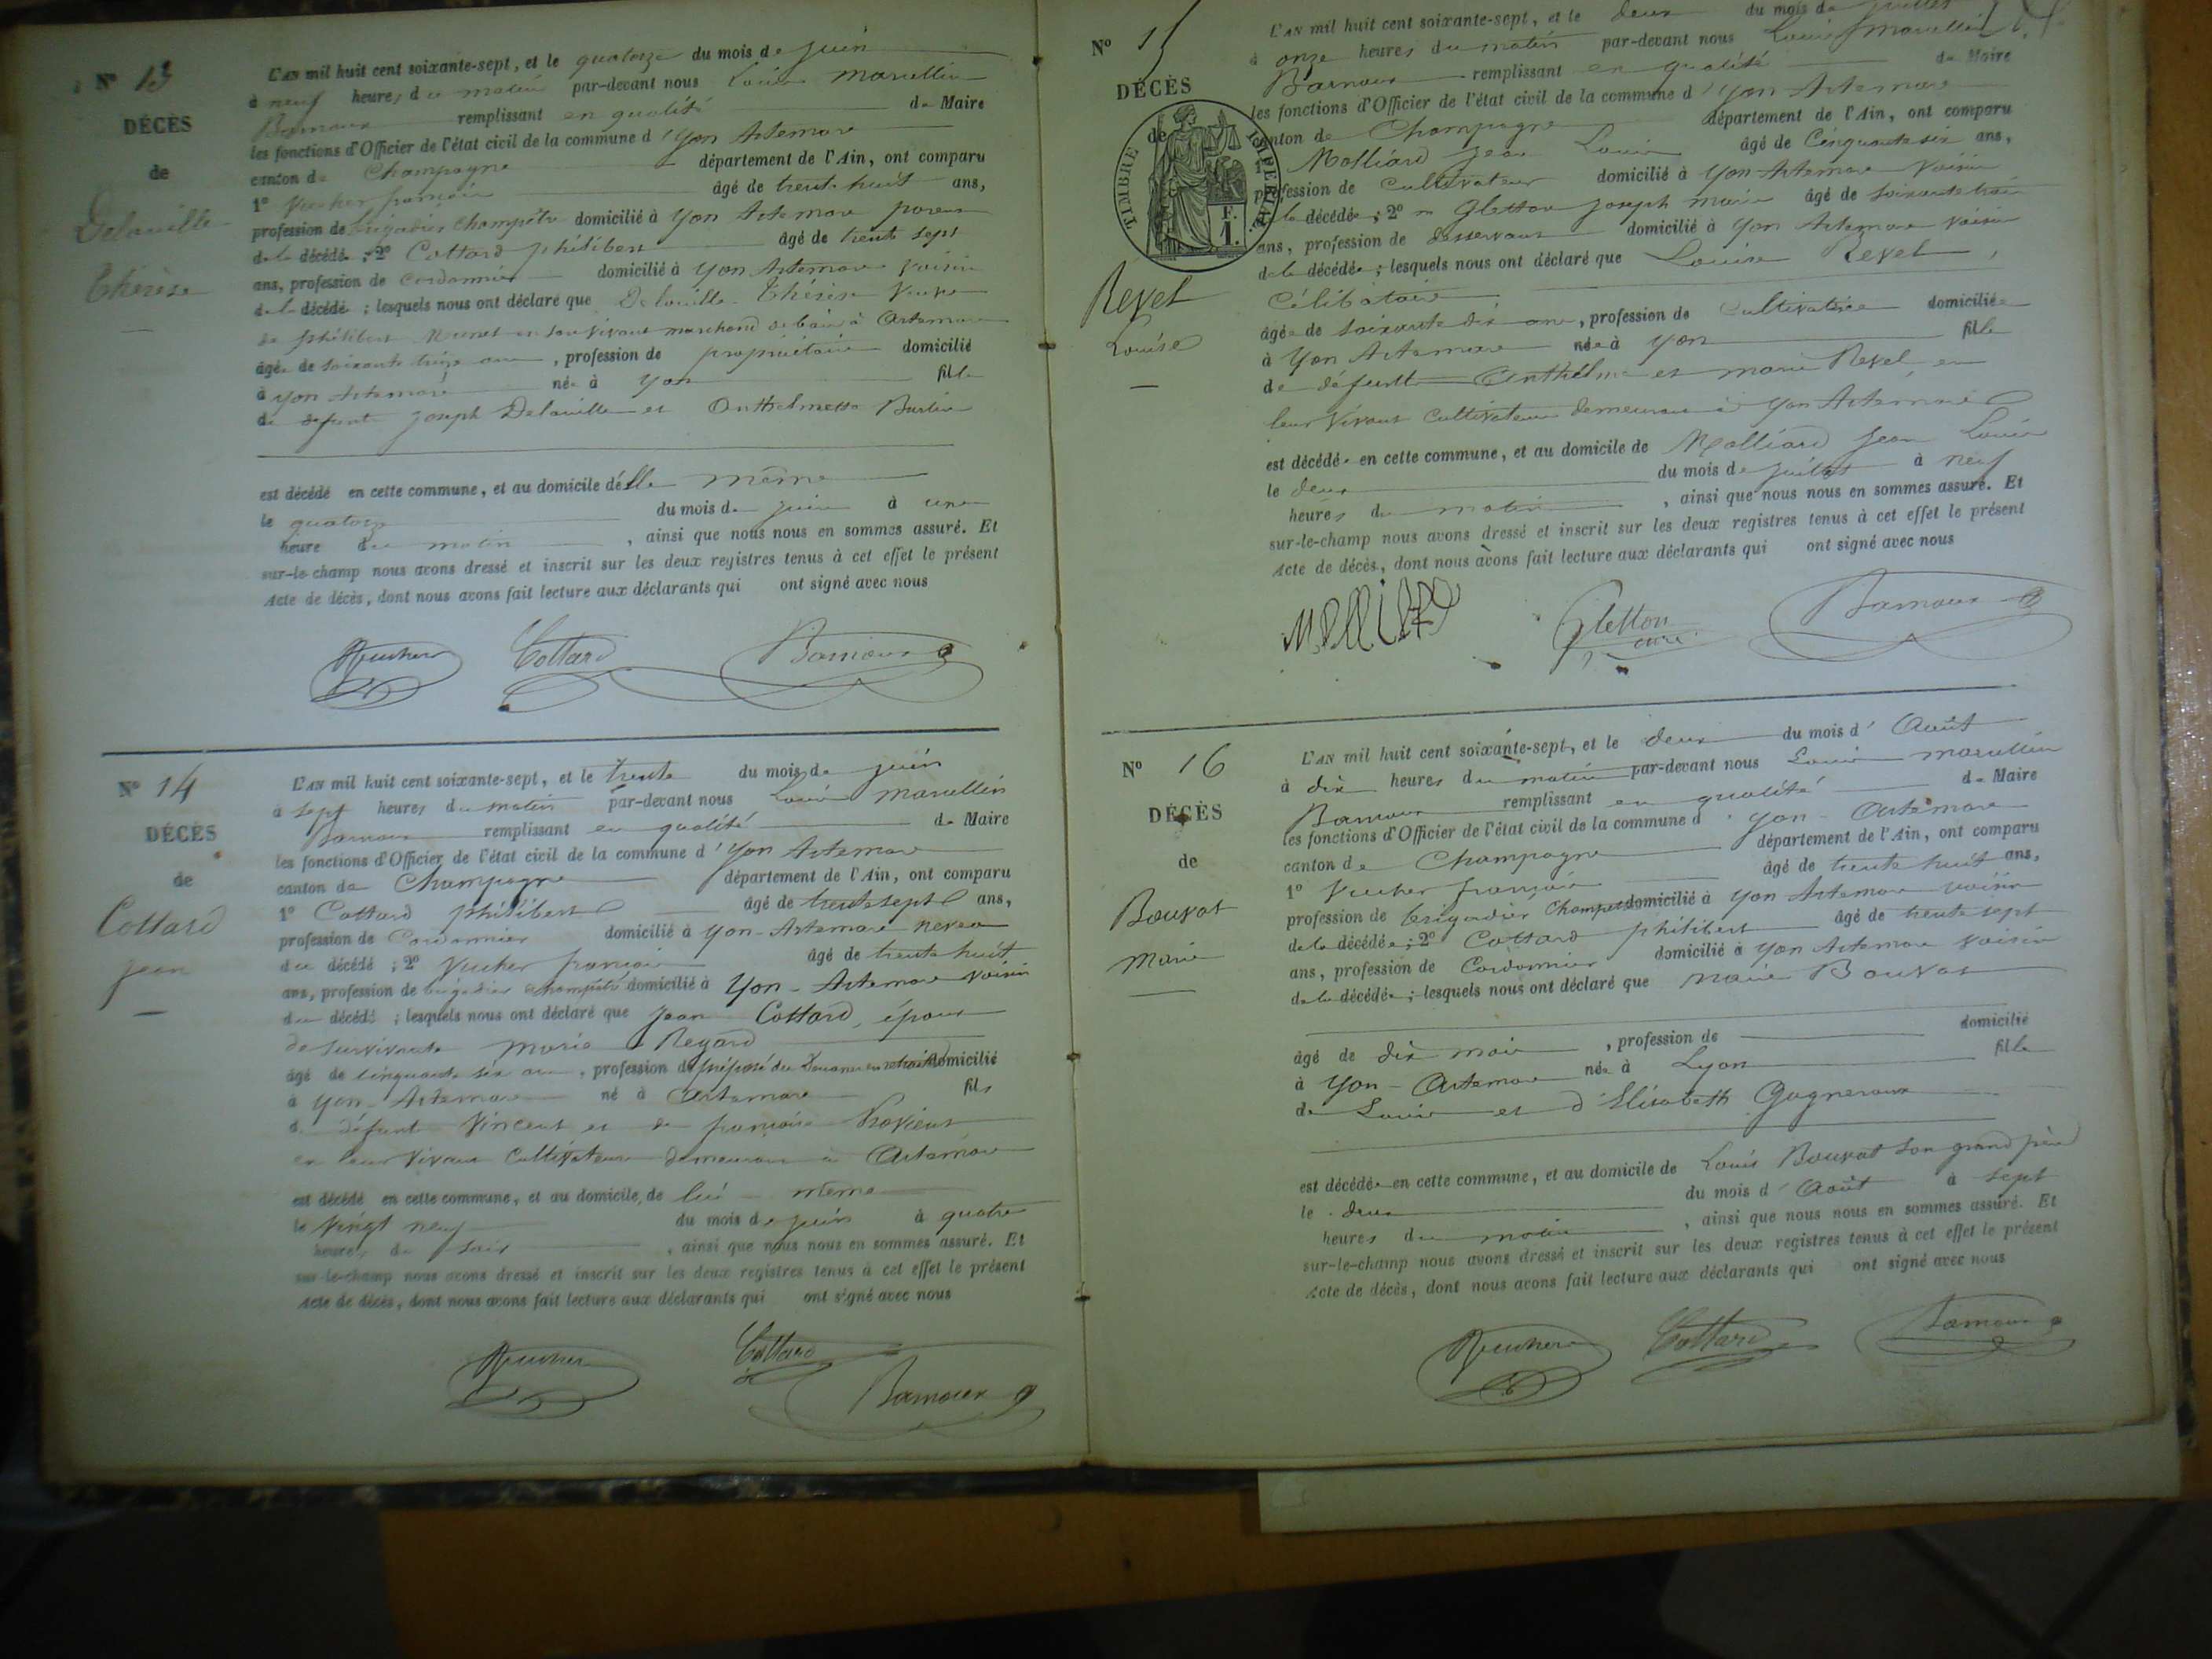 N° 13
DÉCÈS
de
Delaville
Thérèse
L'AN mil huit cent soixante-sept, et le quatorze du mois de juin
à neuf heures du matin par-devant nous Louis Marcellin
remplissant en qualité de Maire
les fonctions d'Officier de l'état civil de la commune d'Yon Artemare
canton de Champagne département de l'Ain, ont comparu
1° Vucher françois âgé de trente huit ans,
profession de brigadier champêtre domicilié à Yon Artemare
de la décédé ; 2° Cottard philibert âgé de trente sept
ans, profession de Cordonnier domicilié à Yon Artemare voisin
de la décédé ; lesquels nous ont déclaré que Delaville Thérèse veuve
de philibert en son vivant marchand de à Artemare
âgée de soixante treize ans, profession de propriétaire domicilié
à Yon Artemare née à Yon fille
de defunt joseph Delaville et
est décédé en cette commune, et au domicile d'elle même
le quatorze du mois de juin à une
heure du matin, ainsi que nous nous en sommes assuré. Et
sur-le-champ nous avons dressé et inscrit sur les deux registres tenus à cet effet le présent
Acte de décès, dont nous avons fait lecture aux déclarants qui ont signé avec nous
Vucher Cottard
N° 14
DÉCÈS
de
Cottard
jean
L'AN mil huit cent soixante-sept, et le trente du mois de juin
à sept heures du matin par-devant nous Louis Marcellin
remplissant en qualité de Maire
les fonctions d'Officier de l'état civil de la commune d'Yon Artemare
canton de Champagne département de l'Ain, ont comparu
1° Cottard philibert âgé de trente sept ans,
profession de Cordonnier domicilié à Yon-Artemare neveu
du décédé ; 2° Vucher françois âgé de trente huit
ans, profession de brigadier champêtre domicilié à Yon-Artemare voisin
du décédé ; lesquels nous ont déclaré que jean Cottard, époux
de survivante marie Regard
âgé de cinquante six ans, profession de préposé des Douanes en retraite domicilié
à Yon-Artemare né à Artemare fils
de défunt Vincent et de françoise
en leur vivant Cultivateurs demeurant à Artemare
est décédé en cette commune, et au domicile de lui même
le vingt neuf du mois de juin à quatre
heures du soir, ainsi que nous nous en sommes assuré. Et
sur-le-champ nous avons dressé et inscrit sur les deux registres tenus à cet effet le présent
Acte de décès, dont nous avons fait lecture aux déclarants qui ont signé avec nous
Vucher Cottard
N° 15
DÉCÈS
de
TIMBRE IMPERIAL
F.
1.
Revel
Louise
L'AN mil huit cent soixante-sept, et le deux du mois de juillet
à onze heures du matin par-devant nous Louis Marcellin
remplissant en qualité de Maire
les fonctions d'Officier de l'état civil de la commune d'Yon Artemare
canton de Champagne département de l'Ain, ont comparu
1° Molliard jean Louis âgé de Cinquante six ans,
profession de Cultivateur domicilié à Yon Artemare voisin
de la décédée ; 2° Gletton joseph marie âgé de
ans, profession de desservant domicilié à Yon Artemare voisin
de la décédée ; lesquels nous ont déclaré que Louise Revel,
Célibataire
âgée de soixante dix ans, profession de Cultivatrice domiciliée
à Yon Artemare née à Yon fille
de défunts Anthelme et marie Revel, en
leur vivant Cultivateurs demeurant à Yon Artemare
est décédée en cette commune, et au domicile de Molliard jean Louis
le deux du mois de juillet à neuf
heures du matin, ainsi que nous nous en sommes assuré. Et
sur-le-champ nous avons dressé et inscrit sur les deux registres tenus à cet effet le présent
Acte de décès, dont nous avons fait lecture aux déclarants qui ont signé avec nous
Gletton
curé
N° 16
DÉCÈS
de
Bouvat
Marie
L'AN mil huit cent soixante-sept, et le deux du mois d'Août
à dix heures du matin par-devant nous Louis Marcellin
remplissant en qualité de Maire
les fonctions d'Officier de l'état civil de la commune d'Yon-Artemare
canton de Champagne département de l'Ain, ont comparu
1° Vucher françois âgé de trente huit ans,
profession de brigadier Champêtre domicilié à Yon Artemare voisin
de la décédée ; 2° Cottard philibert âgé de trente sept
ans, profession de Cordonnier domicilié à Yon Artemare voisin
de la décédée ; lesquels nous ont déclaré que Marie Bouvat
âgé de dix mois, profession de domicilié
à Yon-Artemare née à Lyon fille
de Louis et d'Elisabeth Gagneraux
est décédée en cette commune, et au domicile de Louis Bouvat son grand père
le deux du mois d'Août à sept
heures du matin, ainsi que nous nous en sommes assuré. Et
sur-le-champ nous avons dressé et inscrit sur les deux registres tenus à cet effet le présent
Acte de décès, dont nous avons fait lecture aux déclarants qui ont signé avec nous
Vucher Cottard